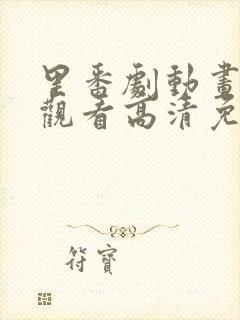 里番劇動畫
觀看高清免
符寶